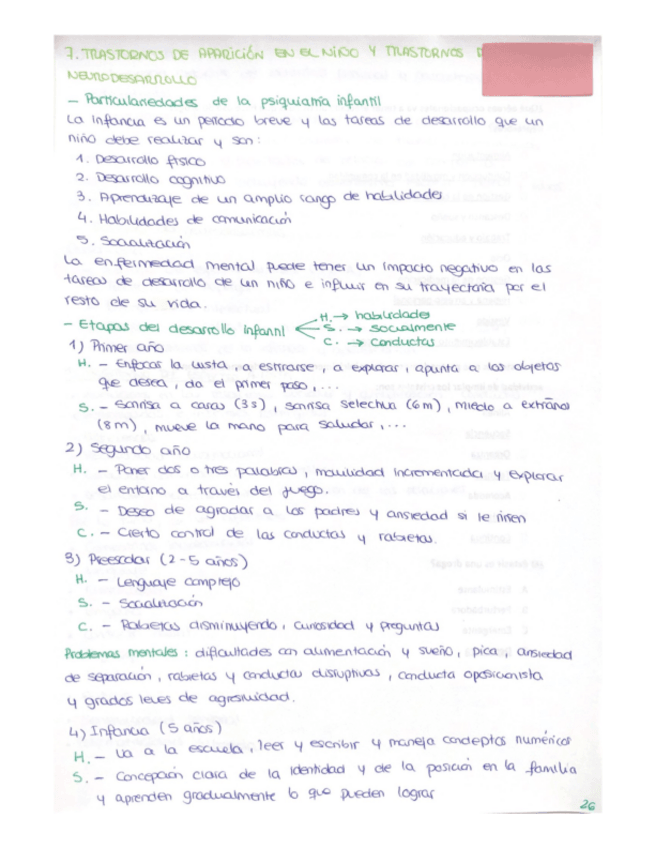 7. TRASTORNOS DE APARICIÓN EN EL NIÑO Y TRASTORNOS
NEURODESARROLLO
- Particularidades de la psiquiatría infantil
La Infancia es un periodo breve y las tareas de desarrollo que un
niño debe realizar y son:
1. Desarrollo físico
2. Desarrollo cognitivo
3. Aprendizaje de un amplio rango de habilidades
4. Habilidades de comunicación
5. Socialización
La enfermedad mental puede tener un impacto negativo en las
tareas de desarrollo de un niño e influir en su trayectoria por el
resto de su vida.
- Etapas del desarrollo infantil
H. → habilidades
S. → socialmente
C. → conductas
1) Primer año
H. - Enfocar la vista, a estirarse, a explorar, apunta a los objetos
que desea, da el primer paso, ...
S. - Sonrisa a caras (3s), sonrisa selectiva (6m), miedo a extraños
(8m), mueve la mano para saludar, ...
2) Segundo año
H. - Poner dos o tres palabras, movilidad incrementada y explorar
el entorno a través del juego.
S. - Deseo de agradar a los padres y ansiedad si le riñen
C. - Cierto control de las conductas y rabietas.
3) Preescolar (2-5 años)
H. - Lenguaje complejo
S. - Socialización
C. - Rabietas disminuyendo, curiosidad y preguntas
Problemas mentales: dificultades con alimentación y sueño, pica, ansiedad
de separación, rabietas y conductas disruptivas, conducta oposicionista
y grados leves de agresividad.
4) Infancia (5 años)
H. - Va a la escuela, leer y escribir y maneja conceptos numéricos
S. - Concepción clara de la identidad y de la posición en la familia
y aprenden gradualmente lo que pueden lograr
26